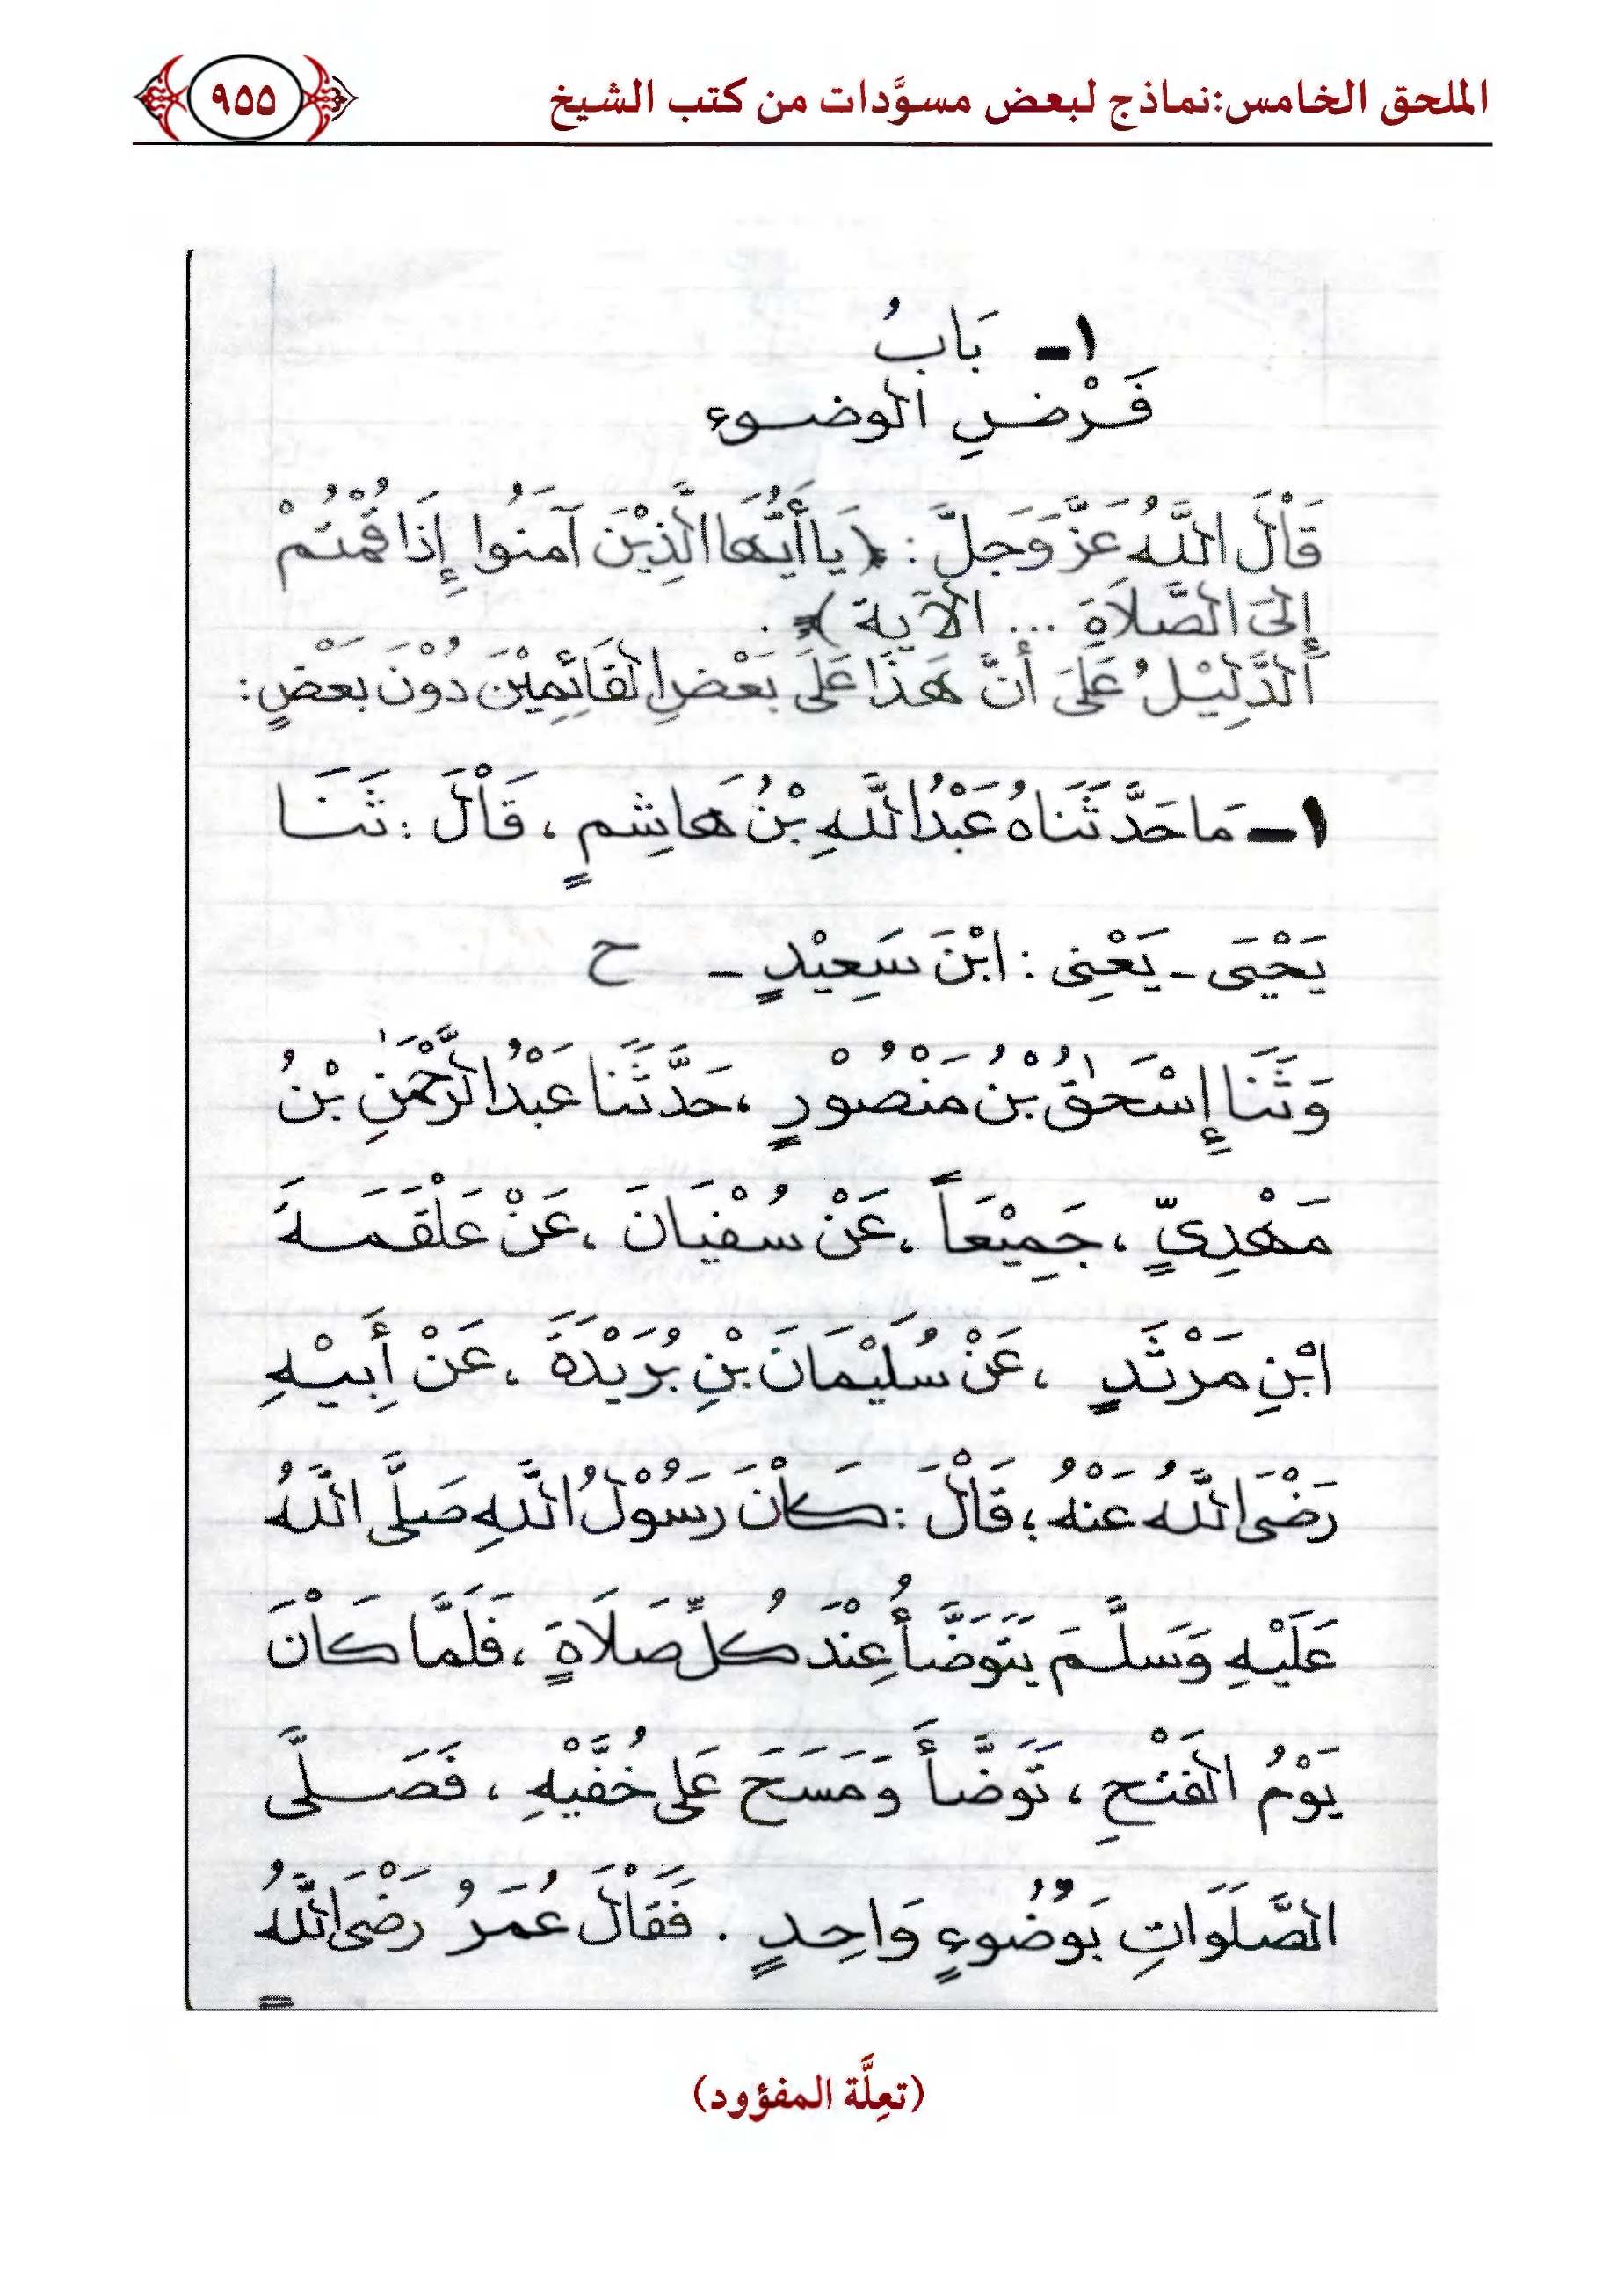 الملحق الخامس:نماذج لبعض مسوَّدات من كتب الشيخ
٩٥٥
١- بَابُ
فَرْضِ الوضوء
قَاْلَ اللَّهُ عَزَّ وَجَلَّ : ﴿ يا أَيُّهَا الَّذِيْنَ آمَنُوا إِذَا قُمْتُمْ
إِلَى الصَّلَاةِ ... الآية ﴾ .
اَلدَّلِيْلُ عَلَى أَنَّ هَذَا عَلَى بَعْضِ القَائِمِيْنَ دُوْنَ بَعْضٍ :
١- مَا حَدَّثَنَاهُ عَبْدُ اللَّهِ بْنُ هَاشِمٍ ، قَاْلَ : ثَنَا
يَحْيَى - يَعْنِى : ابْنَ سَعِيْدٍ - ح
وَثَنَا إِسْحَٰقُ بْنُ مَنْصُوْرٍ ، حَدَّثَنَا عَبْدُ الرَّحْمَٰنِ بْنُ
مَهْدِيٍّ ، جَمِيْعَاً ، عَنْ سُفْيَانَ ، عَنْ عَلْقَمَةَ
ابْنِ مَرْثَدٍ ، عَنْ سُلَيْمَانَ بْنِ بُرَيْدَةَ ، عَنْ أَبِيْهِ
رَضْىَ اللَّهُ عَنْهُ ؛ قَاْلَ : كَاْنَ رَسُوْلُ اللَّهِ صَلَّى اللَّهُ
عَلَيْهِ وَسَلَّمَ يَتَوَضَّأُ عِنْدَ كُلِّ صَلَاةٍ ، فَلَمَّا كَاْنَ
يَوْمُ الْفَتْحِ ، تَوَضَّأَ وَمَسَحَ عَلَى خُفَّيْهِ ، فَصَلَّى
الصَّلَوَاتِ بَوُضُوءٍ وَاحِدٍ . فَقَاْلَ عُمَرُ رَضْىَ اللَّهُ
(تعِلَّة المفؤود)